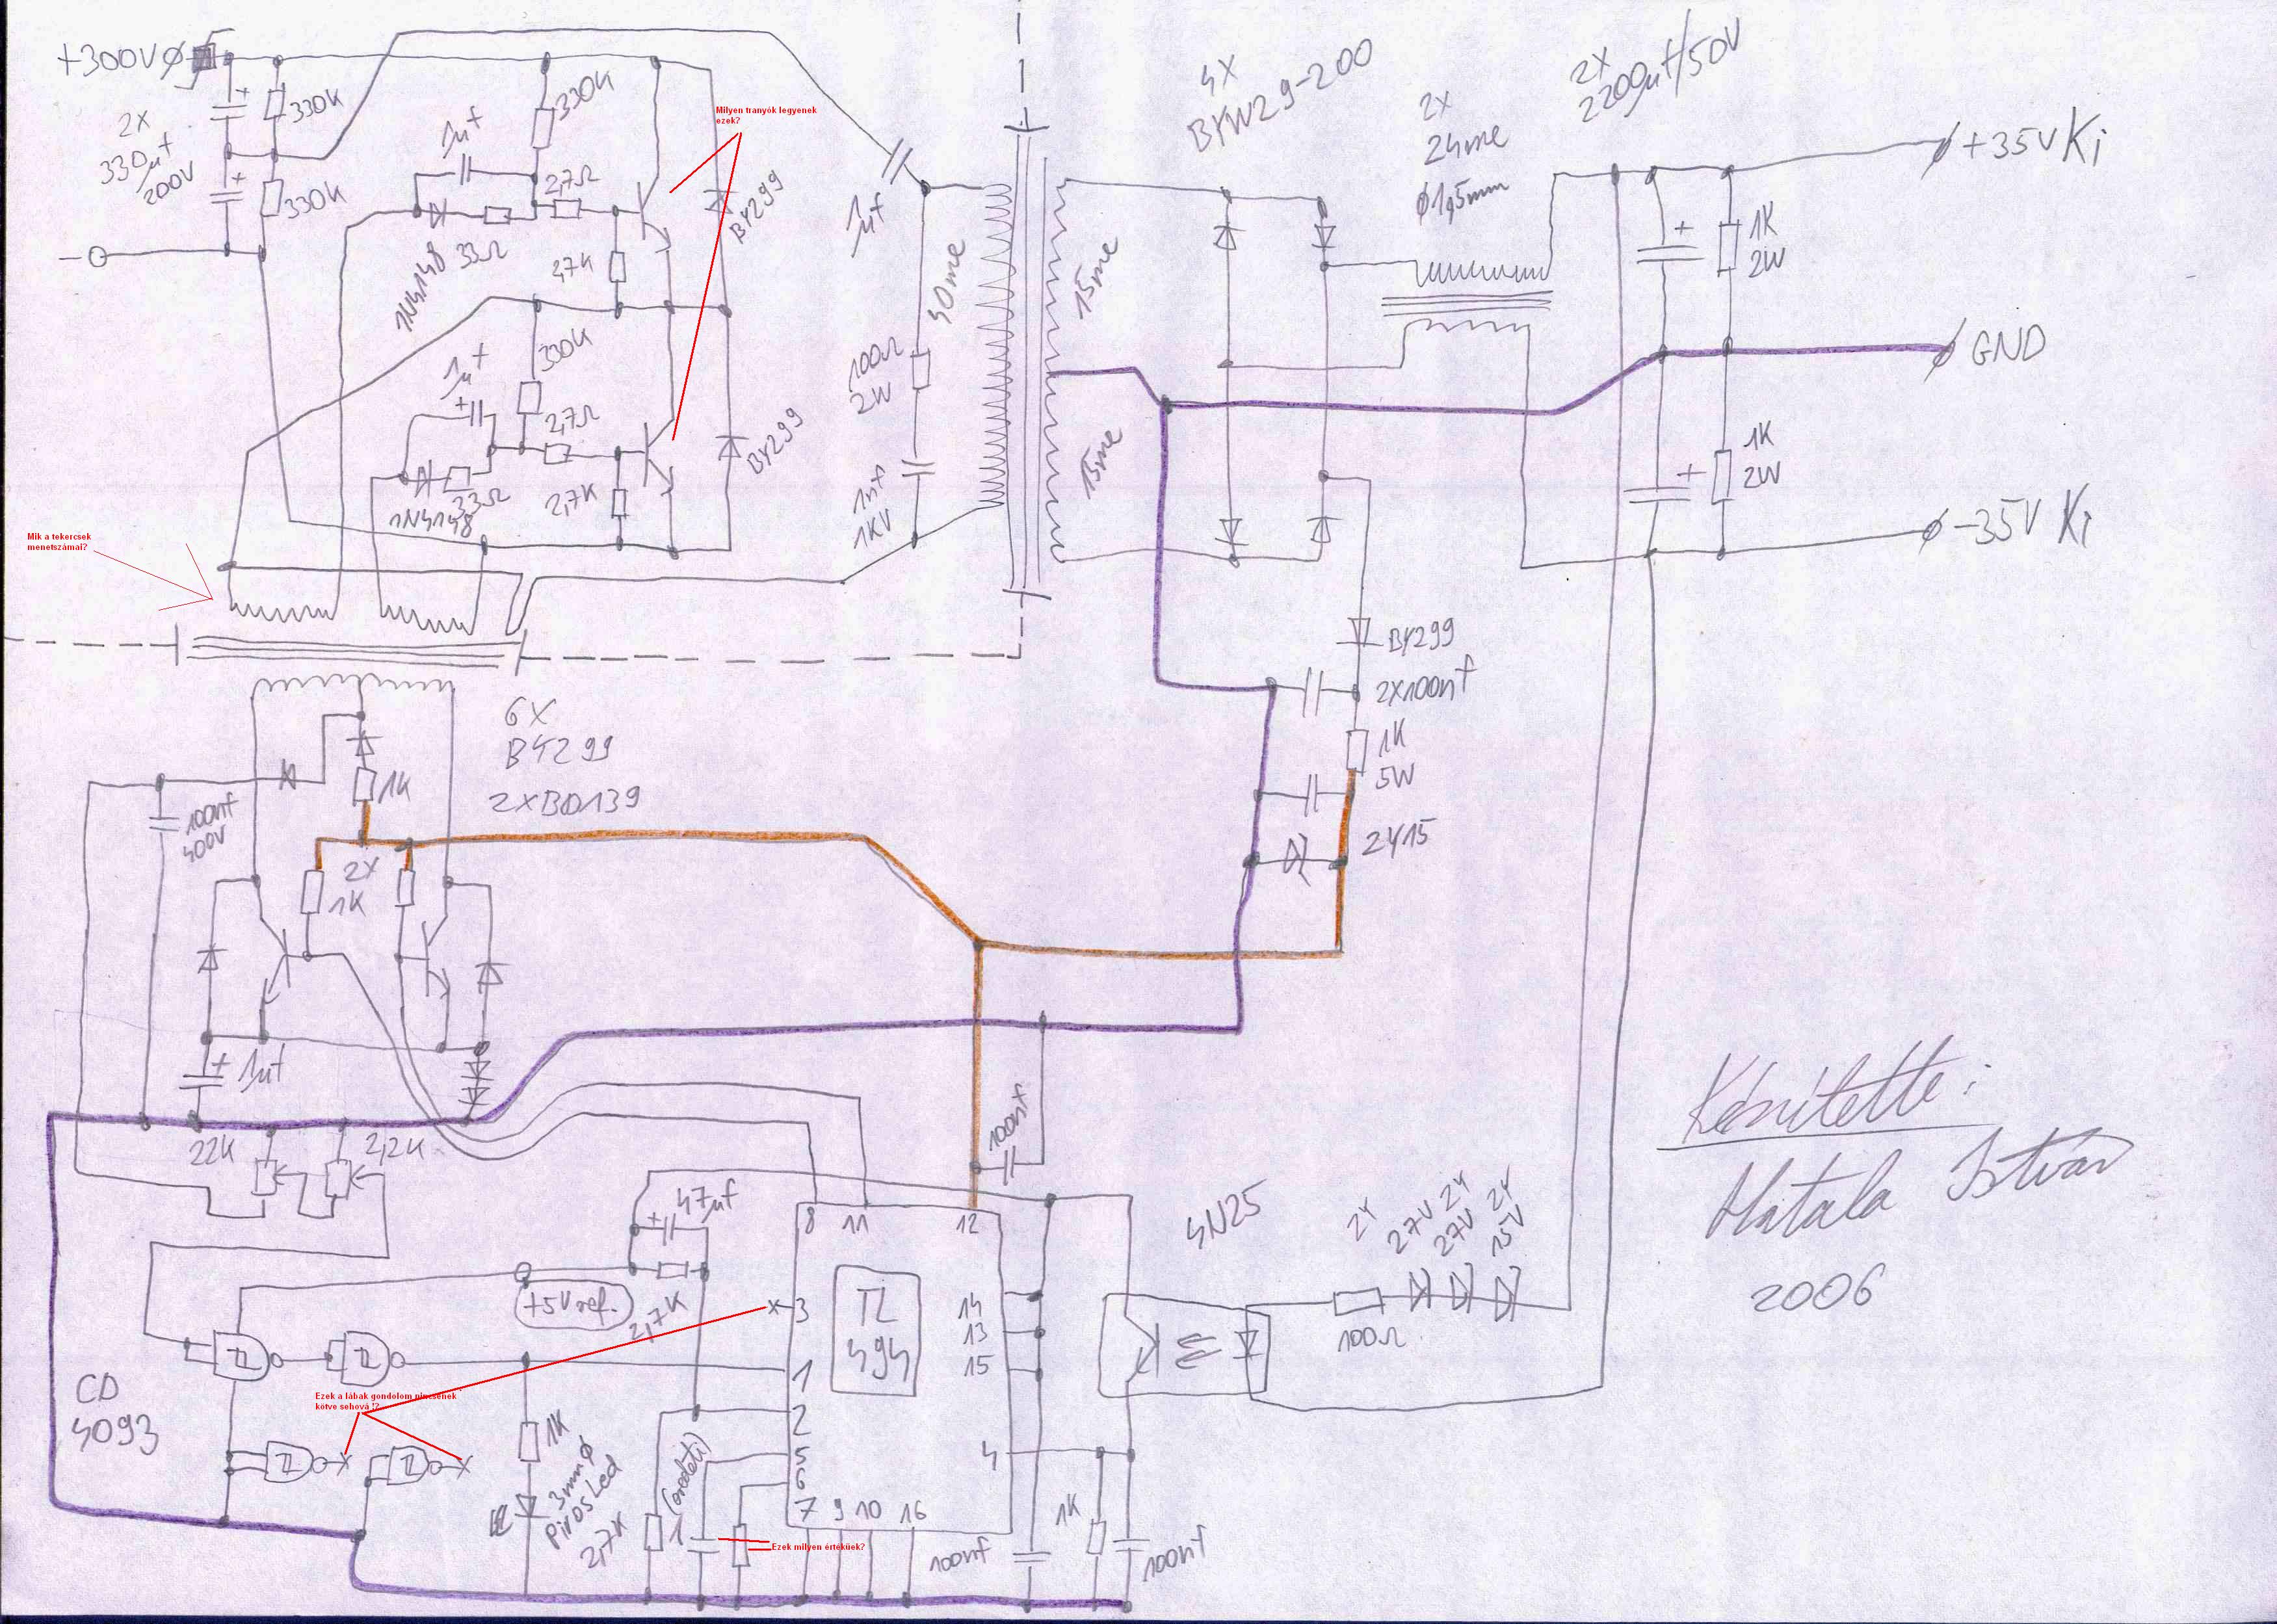 +300V
2X
330µf
200V
330K
330K
1µf
330K
2,7Ω
1N4148
33Ω
2,7K
BY299
Milyen tranyók legyenek
ezek?
1µf
330K
2,7Ω
33Ω
1N4148
2,7K
BY299
Mik a tekercsek
menetszámai?
1µf
40me
100Ω
2W
1nf
1KV
15me
15me
4X
BYW29-200
2X
24me
Ø1,5mm
2X
2200µf/50V
+35V Ki
1K
2W
GND
1K
2W
-35V Ki
BY299
2X100nf
1K
5W
ZY15
6X
BY299
2XBD139
1K
100nf
400V
2X
1K
+ 1µf
22K
2,2K
100nf
47µf
+5Vref.
2,7K
8
11
12
3
TL
494
14
13
15
1
2
5
6
4
7
9
10
16
CD
4093
Ezek a lábak gondolom nincsenek
kötve sehová !?
1K
3mmØ
Piros Led
2,7K
1
Ezek milyen értéküek?
100nf
1K
100nf
4N25
100Ω
ZY
27V
ZY
27V
ZY
15V
Készítette:
Matala István
2006